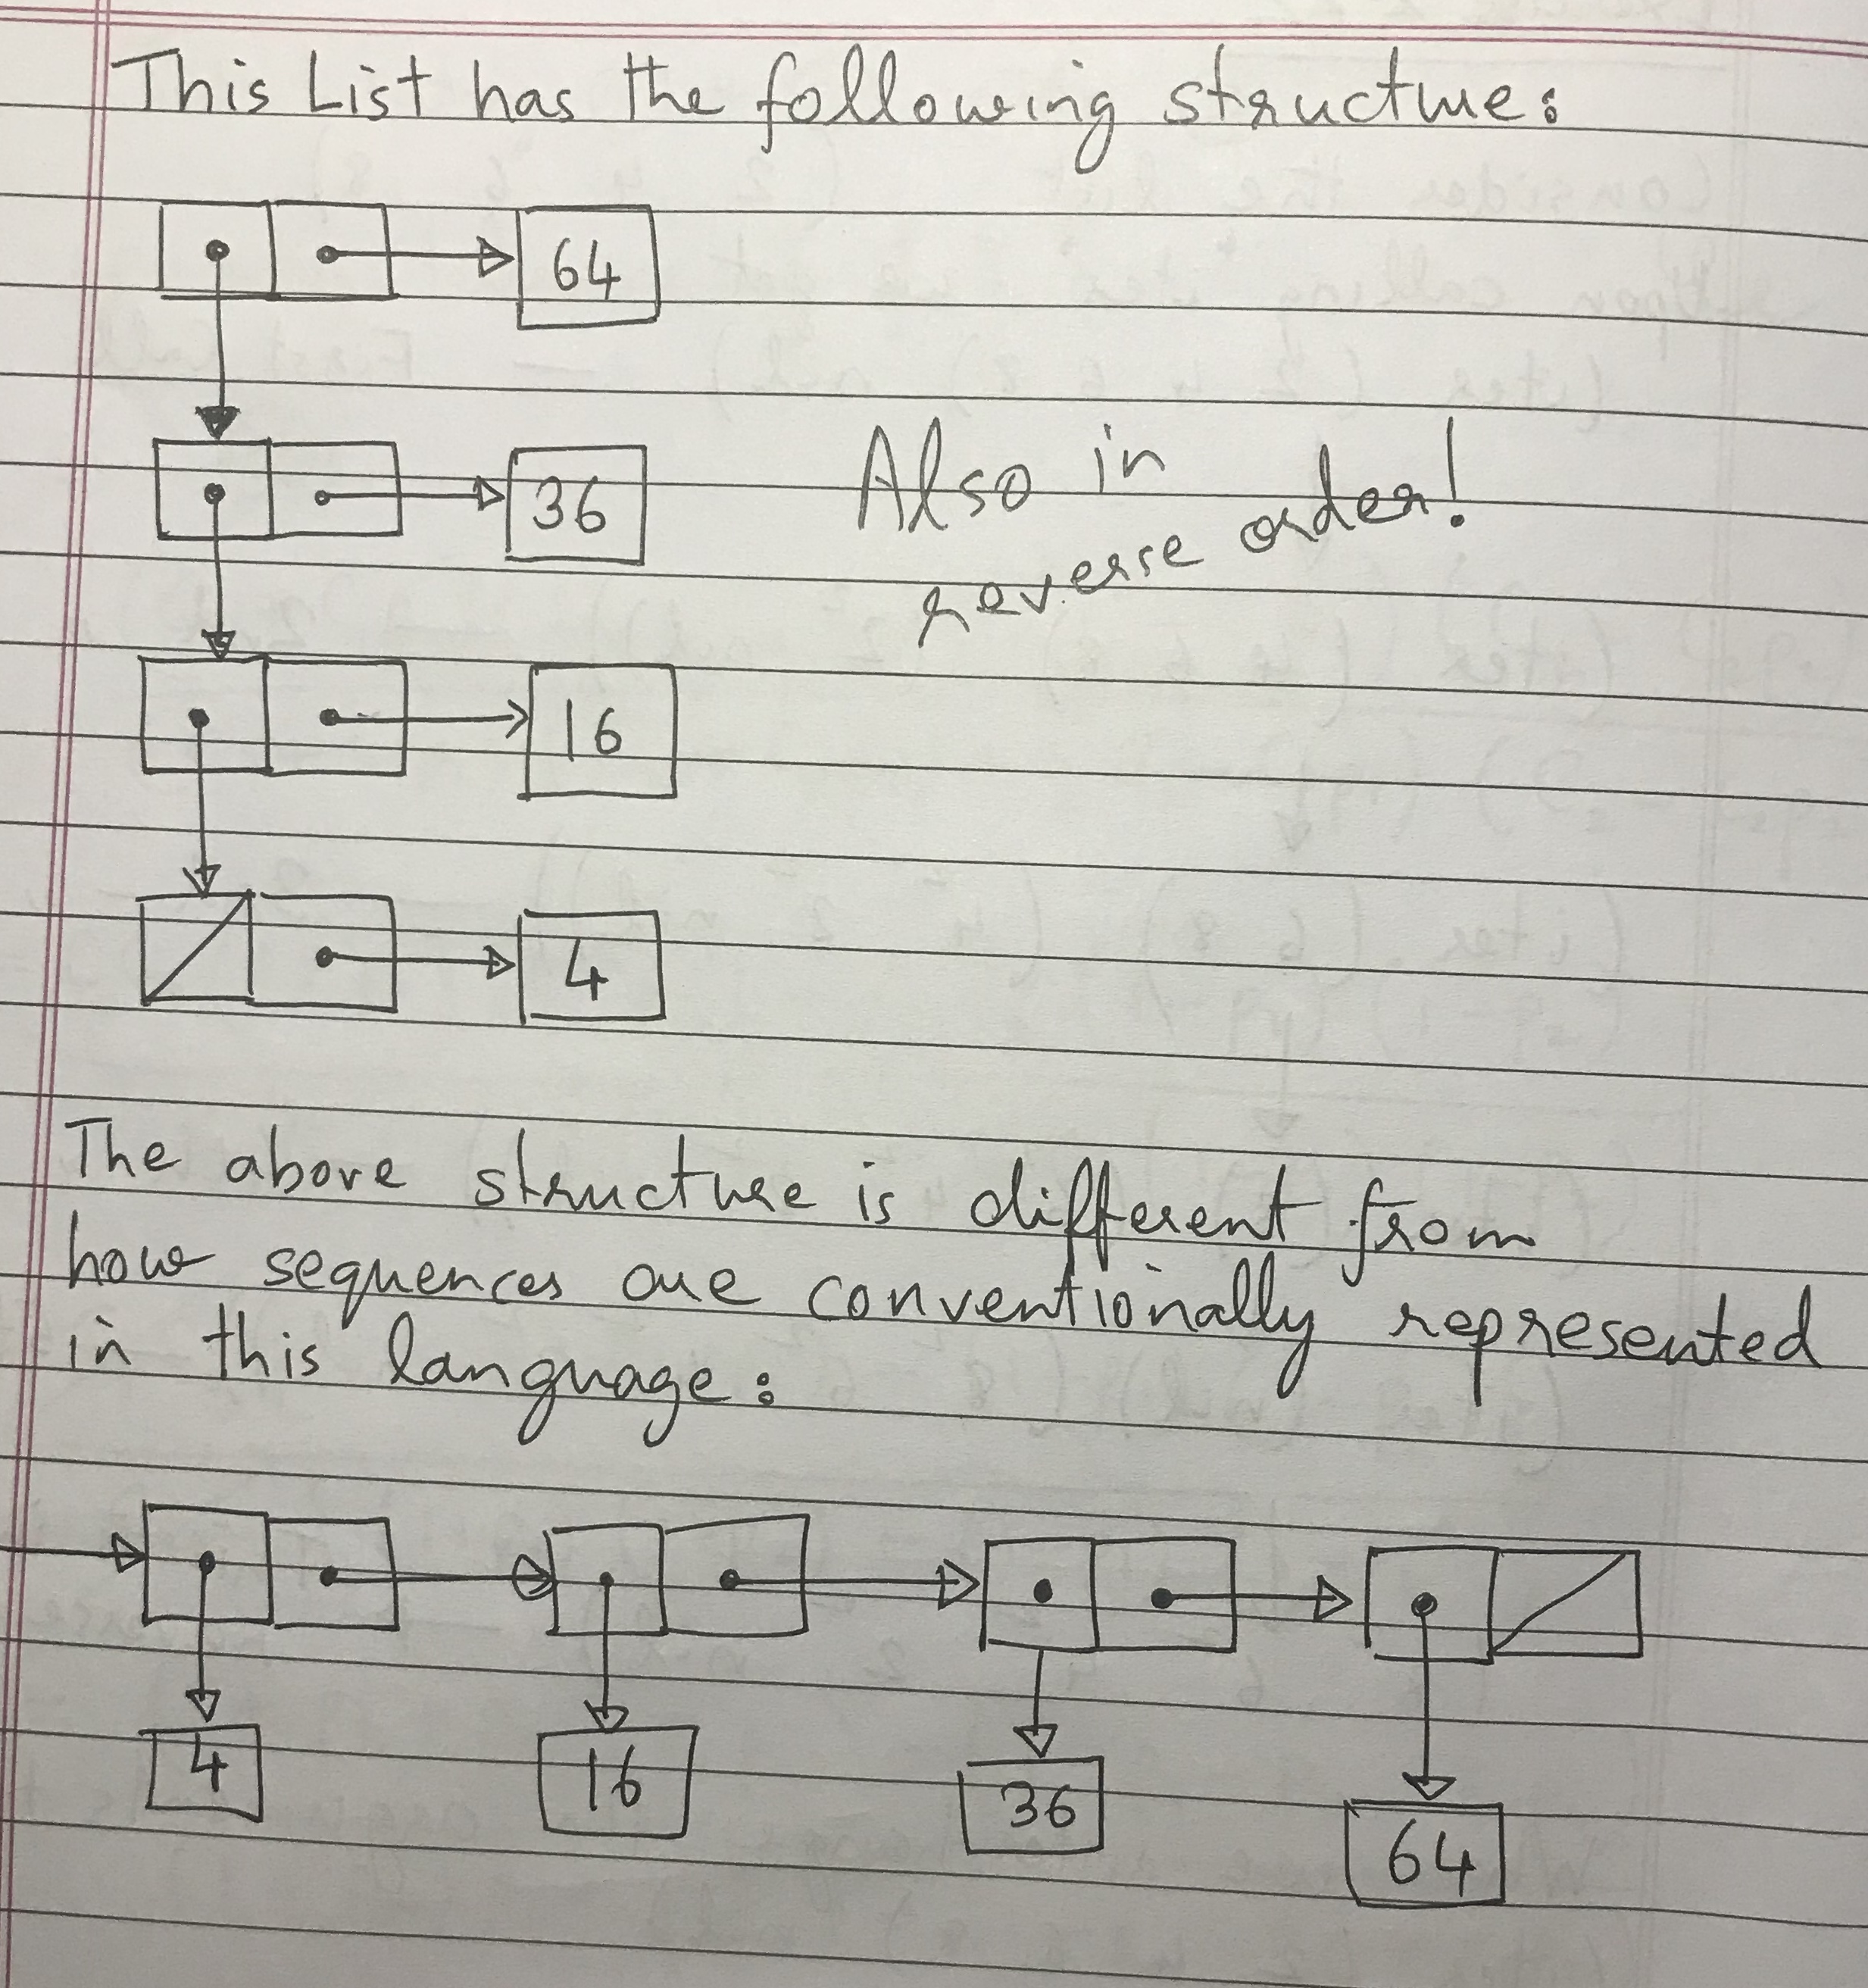 This List has the following structure:
64
36
Also in
reverse order!
16
4
The above structure is different from
how sequences are conventionally represented
in this language:
4
16
36
64